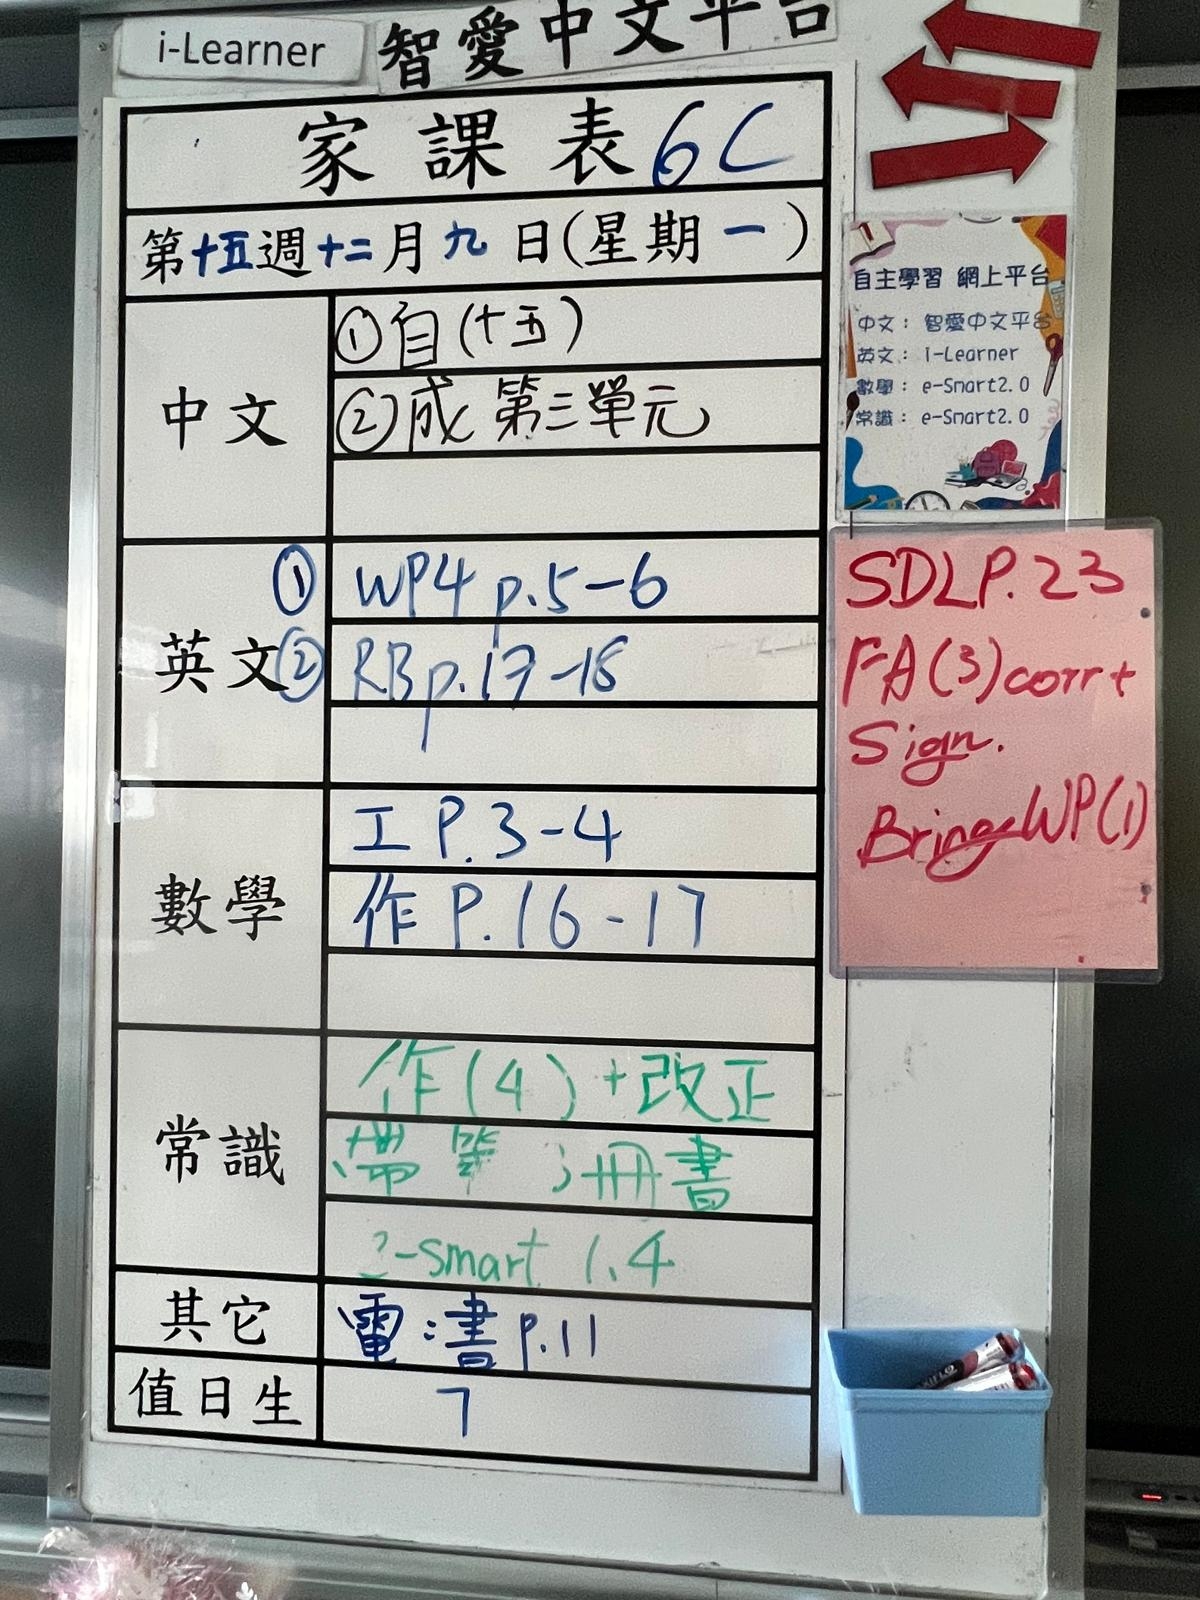 i-Learner 智愛中文平台
家課表 6C
第十五週十二月九日(星期一)
中文
①自(十五)
②成 第三單元
英文
① WP4 p.5-6
② RB p.17-18
數學
工 P.3-4
作 P.16-17
常識
作(4)+改正
帶第 3冊書
-smart 1.4
其它
電:書 p.11
值日生
7
自主學習 網上平台
中文: 智愛中文平台
英文: i-Learner
數學: e-Smart2.0
常識: e-Smart2.0
SDLP.23
FA(3)corr+
Sign.
Bring WP(1)